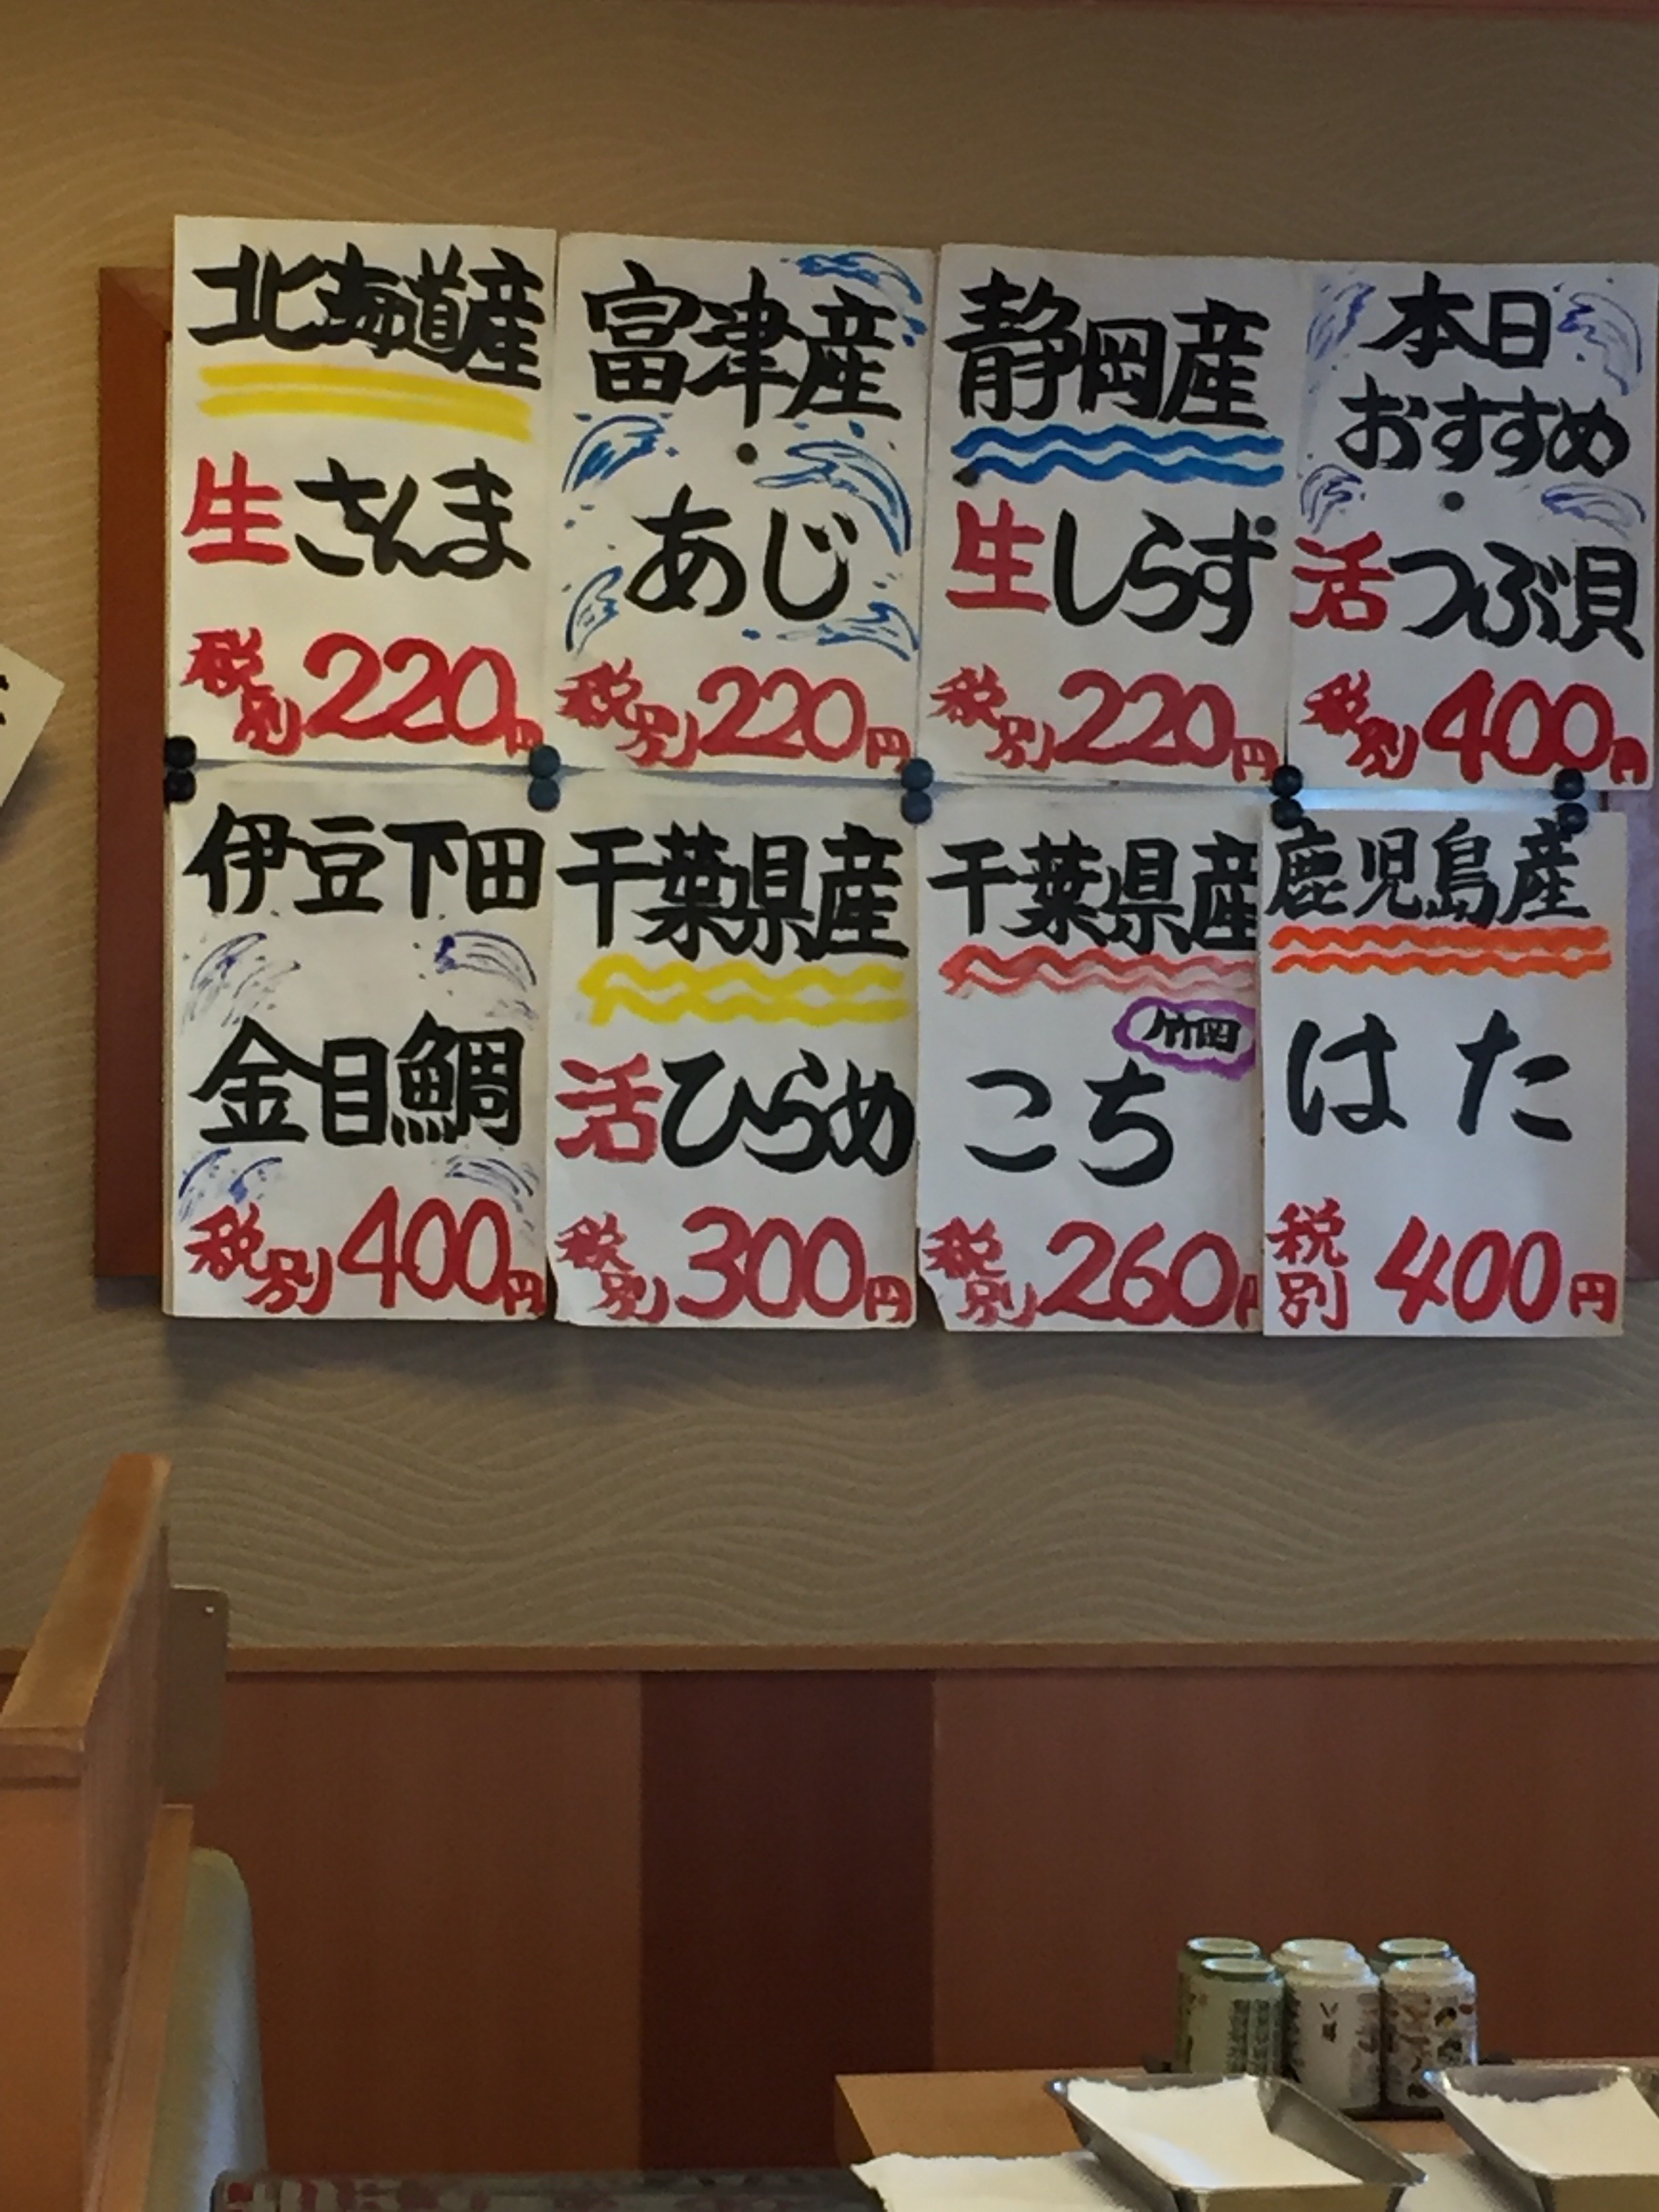 北海道産
生さんま
税別220円
富津産
あじ
税別220円
静岡産
生しらす
税別220円
本日
おすすめ
活つぶ貝
税別400円
伊豆下田
金目鯛
税別400円
千葉県産
活ひらめ
税別300円
千葉県産
竹岡
こち
税別260円
鹿児島産
はた
税別400円